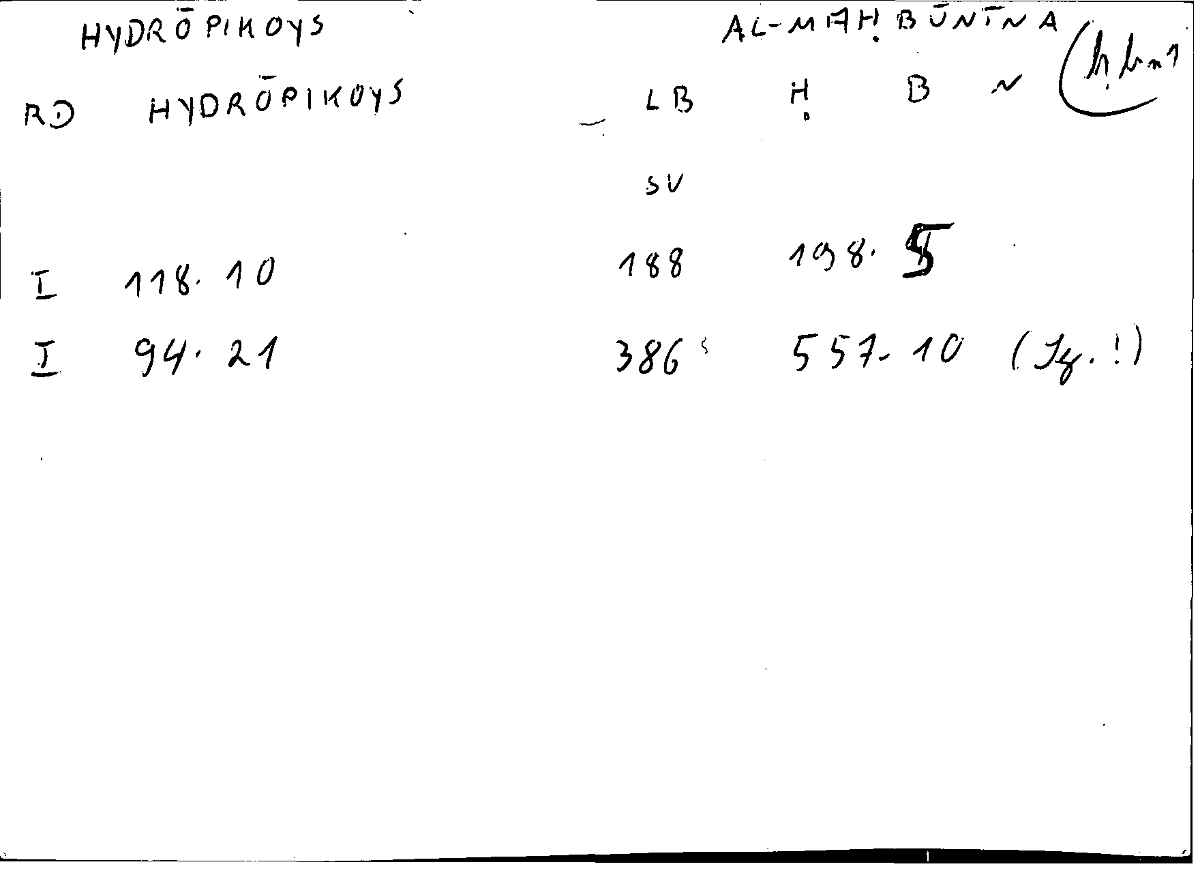 HYDRŌPIKOYS AL-MAḤBŪNĪNA (ḥbn1
RD HYDRŌPIKOYS LB Ḥ B N
SV
I 118.10 188 198.5
I 94.21 386 557.10 (Sg.!)